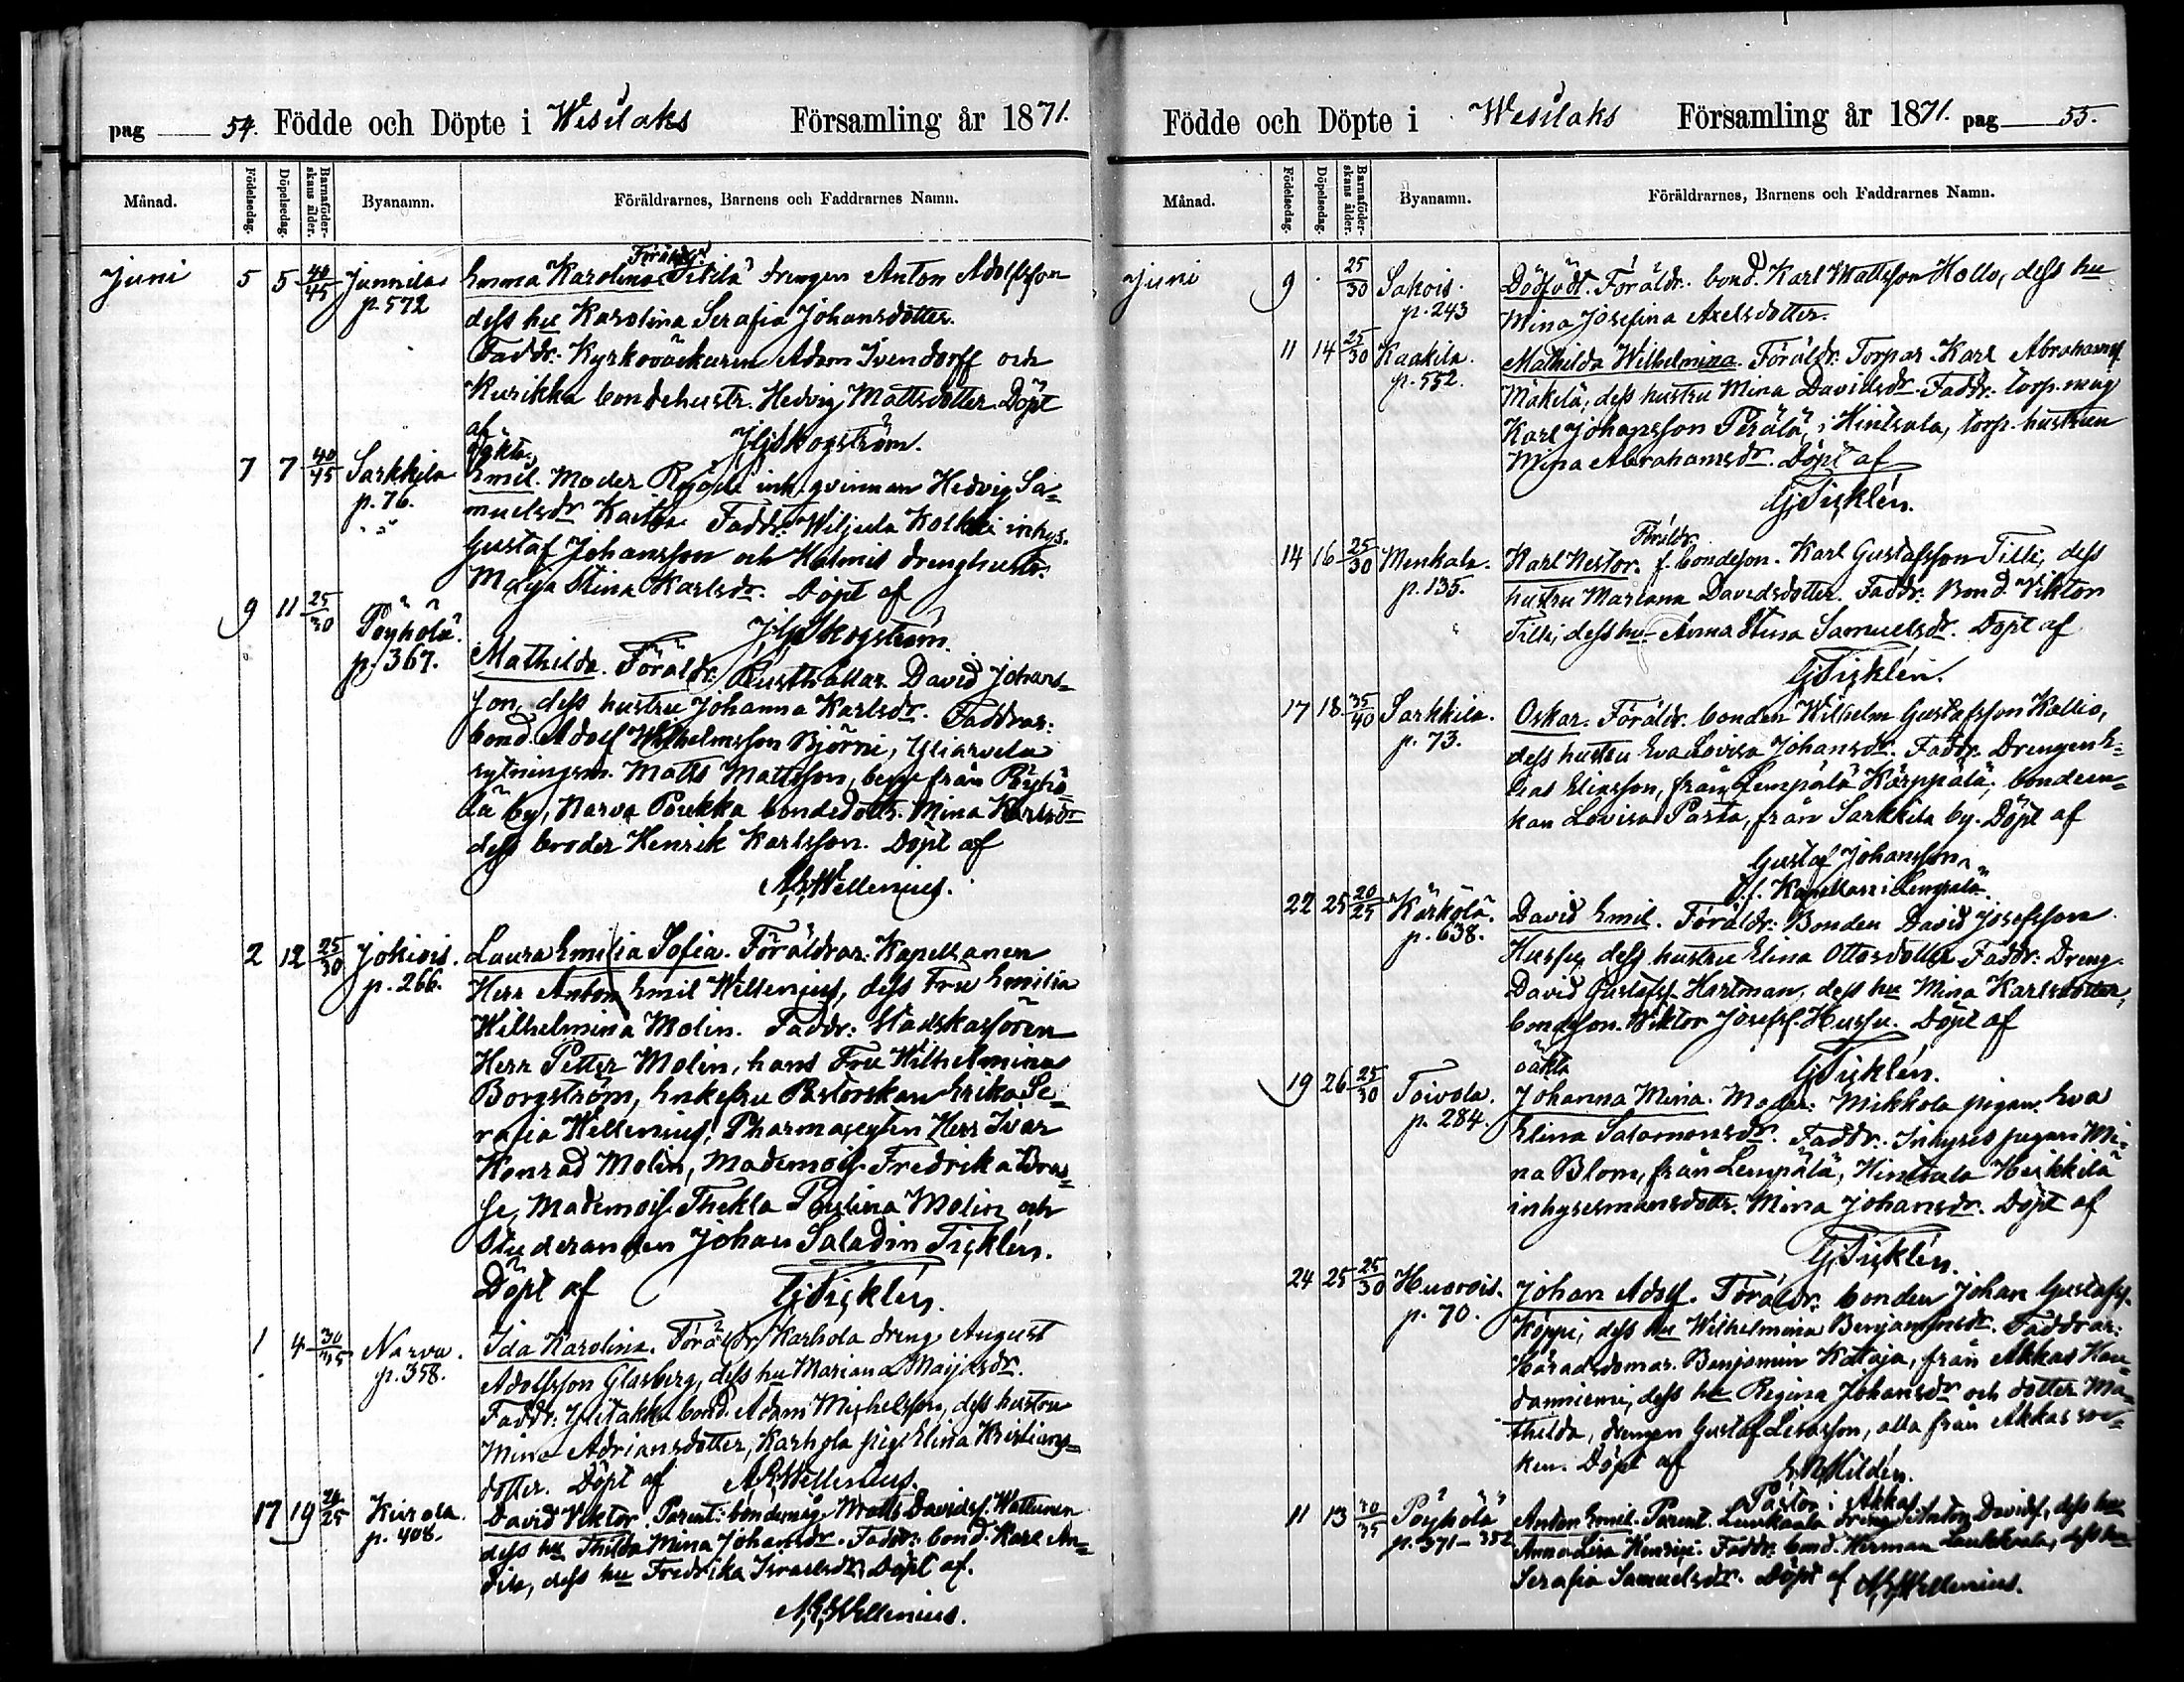 pag 54. Födde och Döpte i Wesilaks Församling år 1871.
Månad. Födelsedag. Döpelsedag. Barnaföderskans ålder. Byanamn. Föräldrarnes, Barnens och Faddrarnes Namn.
Föräldr:
Juni 5 5 40/45 Junnila Emma Karolina Sikilä drengen Anton Adolfsson
p. 572 dess hu Karolina Serafia Johansdotter.
Faddr: Kyrkoväktaren Adam Ivendorff och
Kurikka bondehustr. Hedvig Mattsdotter. Döpt
af JHSkogström.
oäkta,
7 7 40/45 Sarkkila Emil. Moder Rajala inh. qvinnan Hedvig Sa=
p. 76. muelsdr Faddr: Wiljula Kolkki inhys.
Gustaf Johansson och Holmis drenghustr.
Maja Stina Karlsdr. Döpt af
JHSkogström.
9 11 25/30 Pöyhölä. Mathilda. Föräldr: Rusthållar. David Johans=
p. 367. son, dess hustru Johanna Karlsdr. Faddrar:
bond. Adolf Wilhelmsson Björni, Yliarvela
sytningsm. Matts Mattsson, begge från Pöyhö=
lä by, Narva Poukka bondedottr. Mina Karlsdr
dess broder Henrik Karlsson. Döpt af
AEWellenius.
2 12 25/30 Jokiois. Laura Emilia Sofia. Föräldrar: Kapellanen
p. 266. Herr Anton Emil Wellenius, dess Fru Emilia
Wilhelmina Molin. Faddr: Stadskassören
Herr Petter Molin, hans Fru Wilhelmina
Borgström, Enkefru Pastorskan Erika Se=
rafia Wellenius, Pharmaceuten Herr Ivar
Konrad Molin, Mademois. Fredrika Bras=
se, Mademois. Thekla Paulina Molin och
Studeranden Johan Saladin Ticklén.
Döpt af GTicklén.
1 4 30/35 Narva. Ida Karolina. Föräldr: Karhola dreng August
p. 358. Adolfsson Glasberg, dess hu Mariana Maijasdr.
Faddr: Ylistakku bond. Adam Michelsson, dess hustru
Mina Adriansdotter, Karhola pig. Elina Kristians=
dotter. Döpt af AEWellenius.
17 19 20/25 Kurala. David Viktor. Parent: bondemåg. Matts Davidss. Wattunen
p. 408. dess hu Thilda Mina Johansdr. Faddr: bond. Karl An=
tila, dess hu Fredrika Israelsdr. Döpt af.
AEWellenius.
Födde och Döpte i Wesilaks Församling år 1871. pag 55.
Månad. Födelsedag. Döpelsedag. Barnaföderskans ålder. Byanamn. Föräldrarnes, Barnens och Faddrarnes Namn.
Juni 9 25/30 Sakois. Dödfödt. Föräldr. bond. Karl Mattsson Hollo, dess hu
p. 243 Mina Josefina Axelsdotter.
11 14 25/30 Kaakila. Mathilda Wilhelmina. Föräldr: Torpar. Karl Abrahamss.
p. 552. Mäkilä, dess hustru Mina Davidsdr. Faddr: torp. mag
Karl Johansson Perälä, i Hintsala, torp. hustrun
Mina Abrahamsdr. Döpt af
GTicklén.
Föräldr.
14 16 25/30 Menkala. Karl Nestor. f. bondeson. Karl Gustafsson Tilli, dess
p. 135. hustru Mariana Davidsdotter. Faddr: Bond. Viktor
Tilli, dess hu Anna Stina Samuelsdr. Döpt af
GTicklén.
17 18 35/40 Sarkkila. Oskar. Föräldr. bonden Wilhelm Gustafsson Kallio,
p. 73. dess hustru Eva Lovisa Johansdr. Faddr. Drengen E=
lias Eliasson, från Lempälä Kärppälä, bondeen=
kan Lovisa Pasta, från Sarkkila by. Döpt af
Gustaf Johansson
V.f. Kapellan i Lempälä.
22 25 20/25 Kärkölä. David Emil. Föräldr: Bonden David Josefsson
p. 638. Hussu, dess hustru Elina Ottosdotter. Faddr: Dreng.
David Gustafss. Hartman, dess hu Mina Karlsdotter,
bondeson. Viktor Josefss. Hussu. Döpt af
GTicklén.
oäkta
19 26 25/30 Toivola. Johanna Mina. Moder: Mikkola pigan Eva
p. 284. Elina Salomonsdr. Faddr. Inhyses pigan Mi=
na Blom, från Lempälä, Hintsala Heikkilä
inhysesmansdottr. Mina Johansdr. Döpt af
GTicklén.
24 25 25/30 Huovois. Johan Adolf. Föräldr: bonden Johan Gustafss.
p. 70. Köppi, dess hu Wilhelmina Benjaminsdr. Faddrar:
Häradsdomar. Benjamin Kataja, från Akkas Kau=
danniemi, dess hu Regina Johansdr och dotter Ma=
thilda, drengen Gustaf Lisasson, alla från Akkas soc=
ken. Döpt af Hildén.
Pastor i Akkas.
11 13 30/35 Pöyhölä Anton Emil. Parent. Laukkaala dreng Anton Davidss., dess hu
p. 371–352 Anna Lisa Henrici. Faddr: bond. Herman Laukkaala, dess hu
Serafia Samuelsdr. Döpt af AEWellenius.